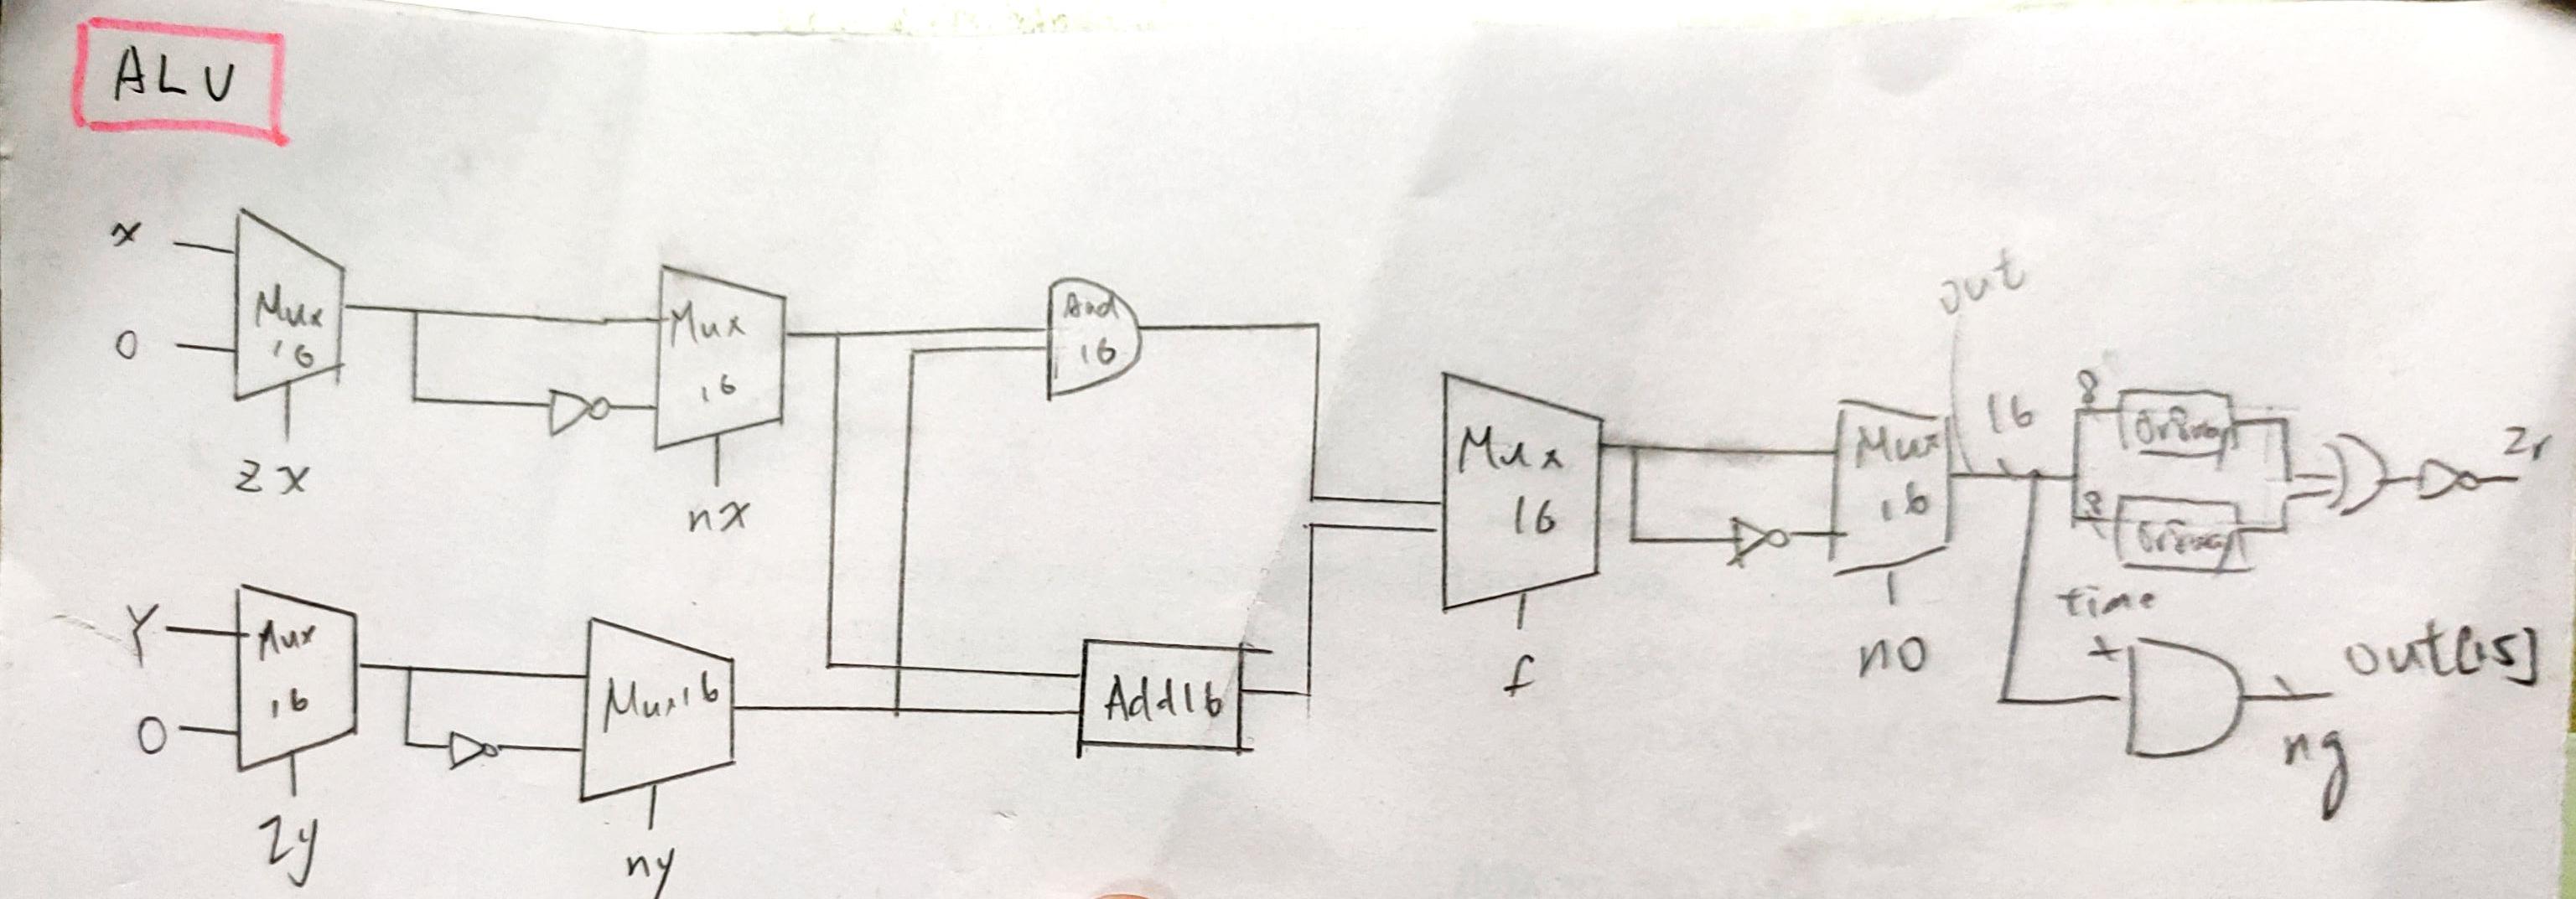 ALU
x
0
Mux
16
zx
Mux
16
nx
And
16
Y
0
Mux
16
zy
Mux16
ny
Add16
Mux
16
f
Mux
16
no
out
16
8
Or8way
8
Or8way
zr
time
out[15]
ng